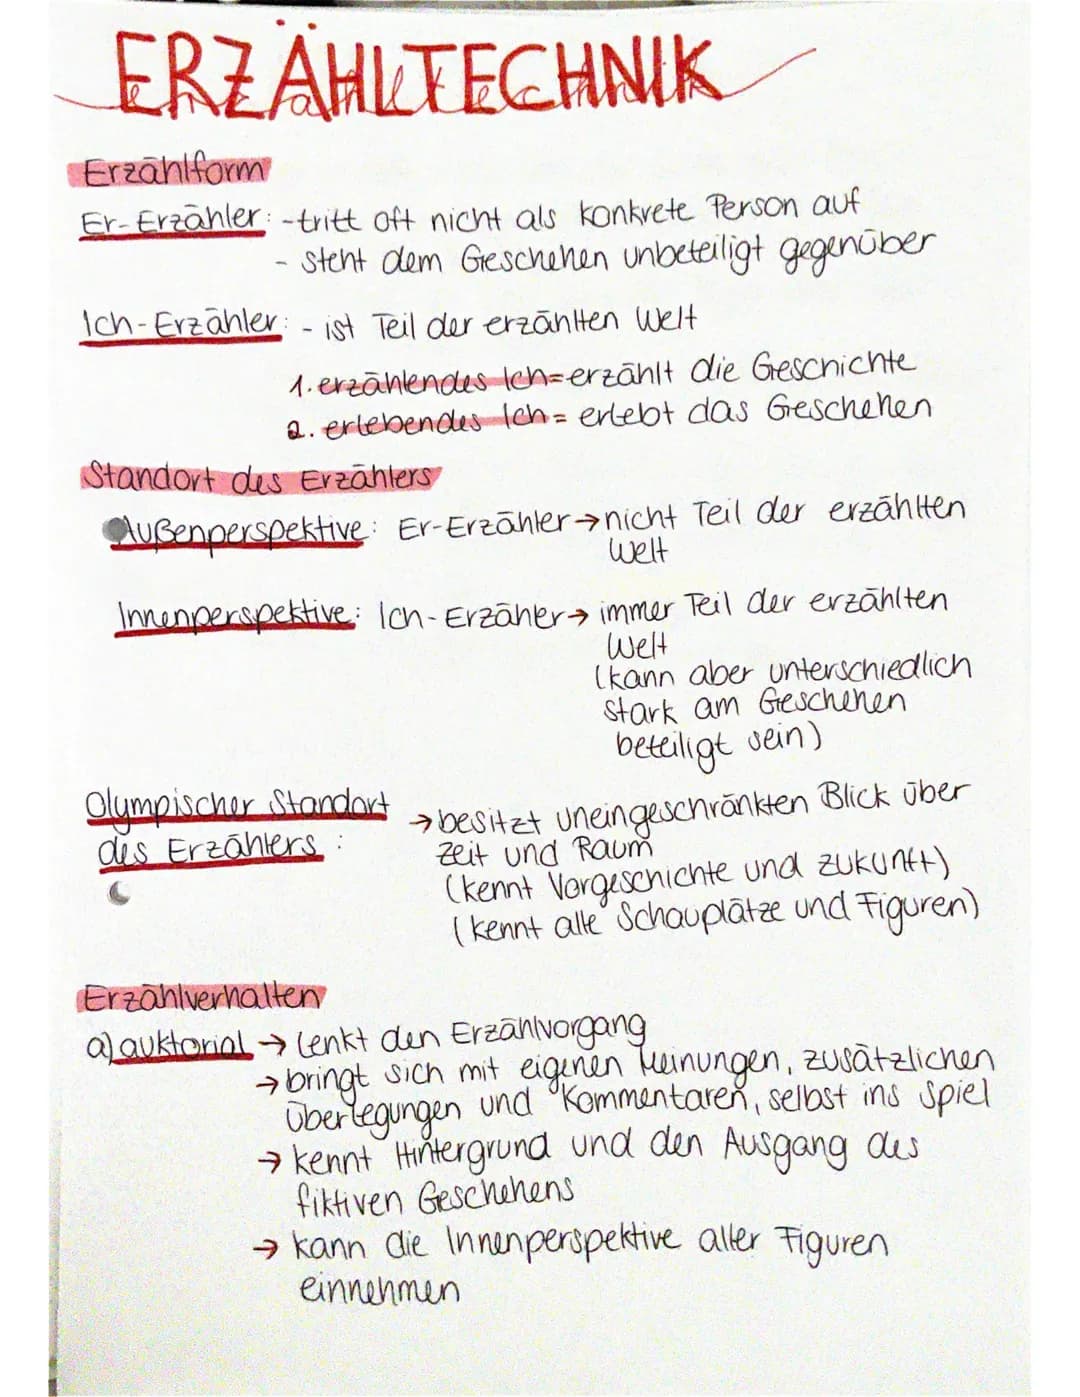 ERZÄHLTECHNIK
Erzählform
Er-Erzähler: - tritt oft nicht als konkrete Person auf
- steht dem Geschehen unbeteiligt gegenüber
Ich-Erzähler: - ist Teil der erzählten Welt
1. erzählendes Ich = erzählt die Geschichte
2. erlebendes Ich = erlebt das Geschehen
Standort des Erzählers
Außenperspektive: Er-Erzähler → nicht Teil der erzählten
Welt
Innenperspektive: Ich-Erzäher → immer Teil der erzählten
Welt
(kann aber unterschiedlich
stark am Geschehen
beteiligt sein)
Olympischer Standort
des Erzählers :
→ besitzt uneingeschränkten Blick über
Zeit und Raum
(kennt Vorgeschichte und Zukunft)
(kennt alle Schauplätze und Figuren)
Erzählverhalten
a) auktorial → lenkt den Erzählvorgang
→ bringt sich mit eigenen Meinungen, zusätzlichen
Überlegungen und Kommentaren, selbst ins Spiel
→ kennt Hintergrund und den Ausgang des
fiktiven Geschehens
→ kann die Innenperspektive aller Figuren
einnehmen